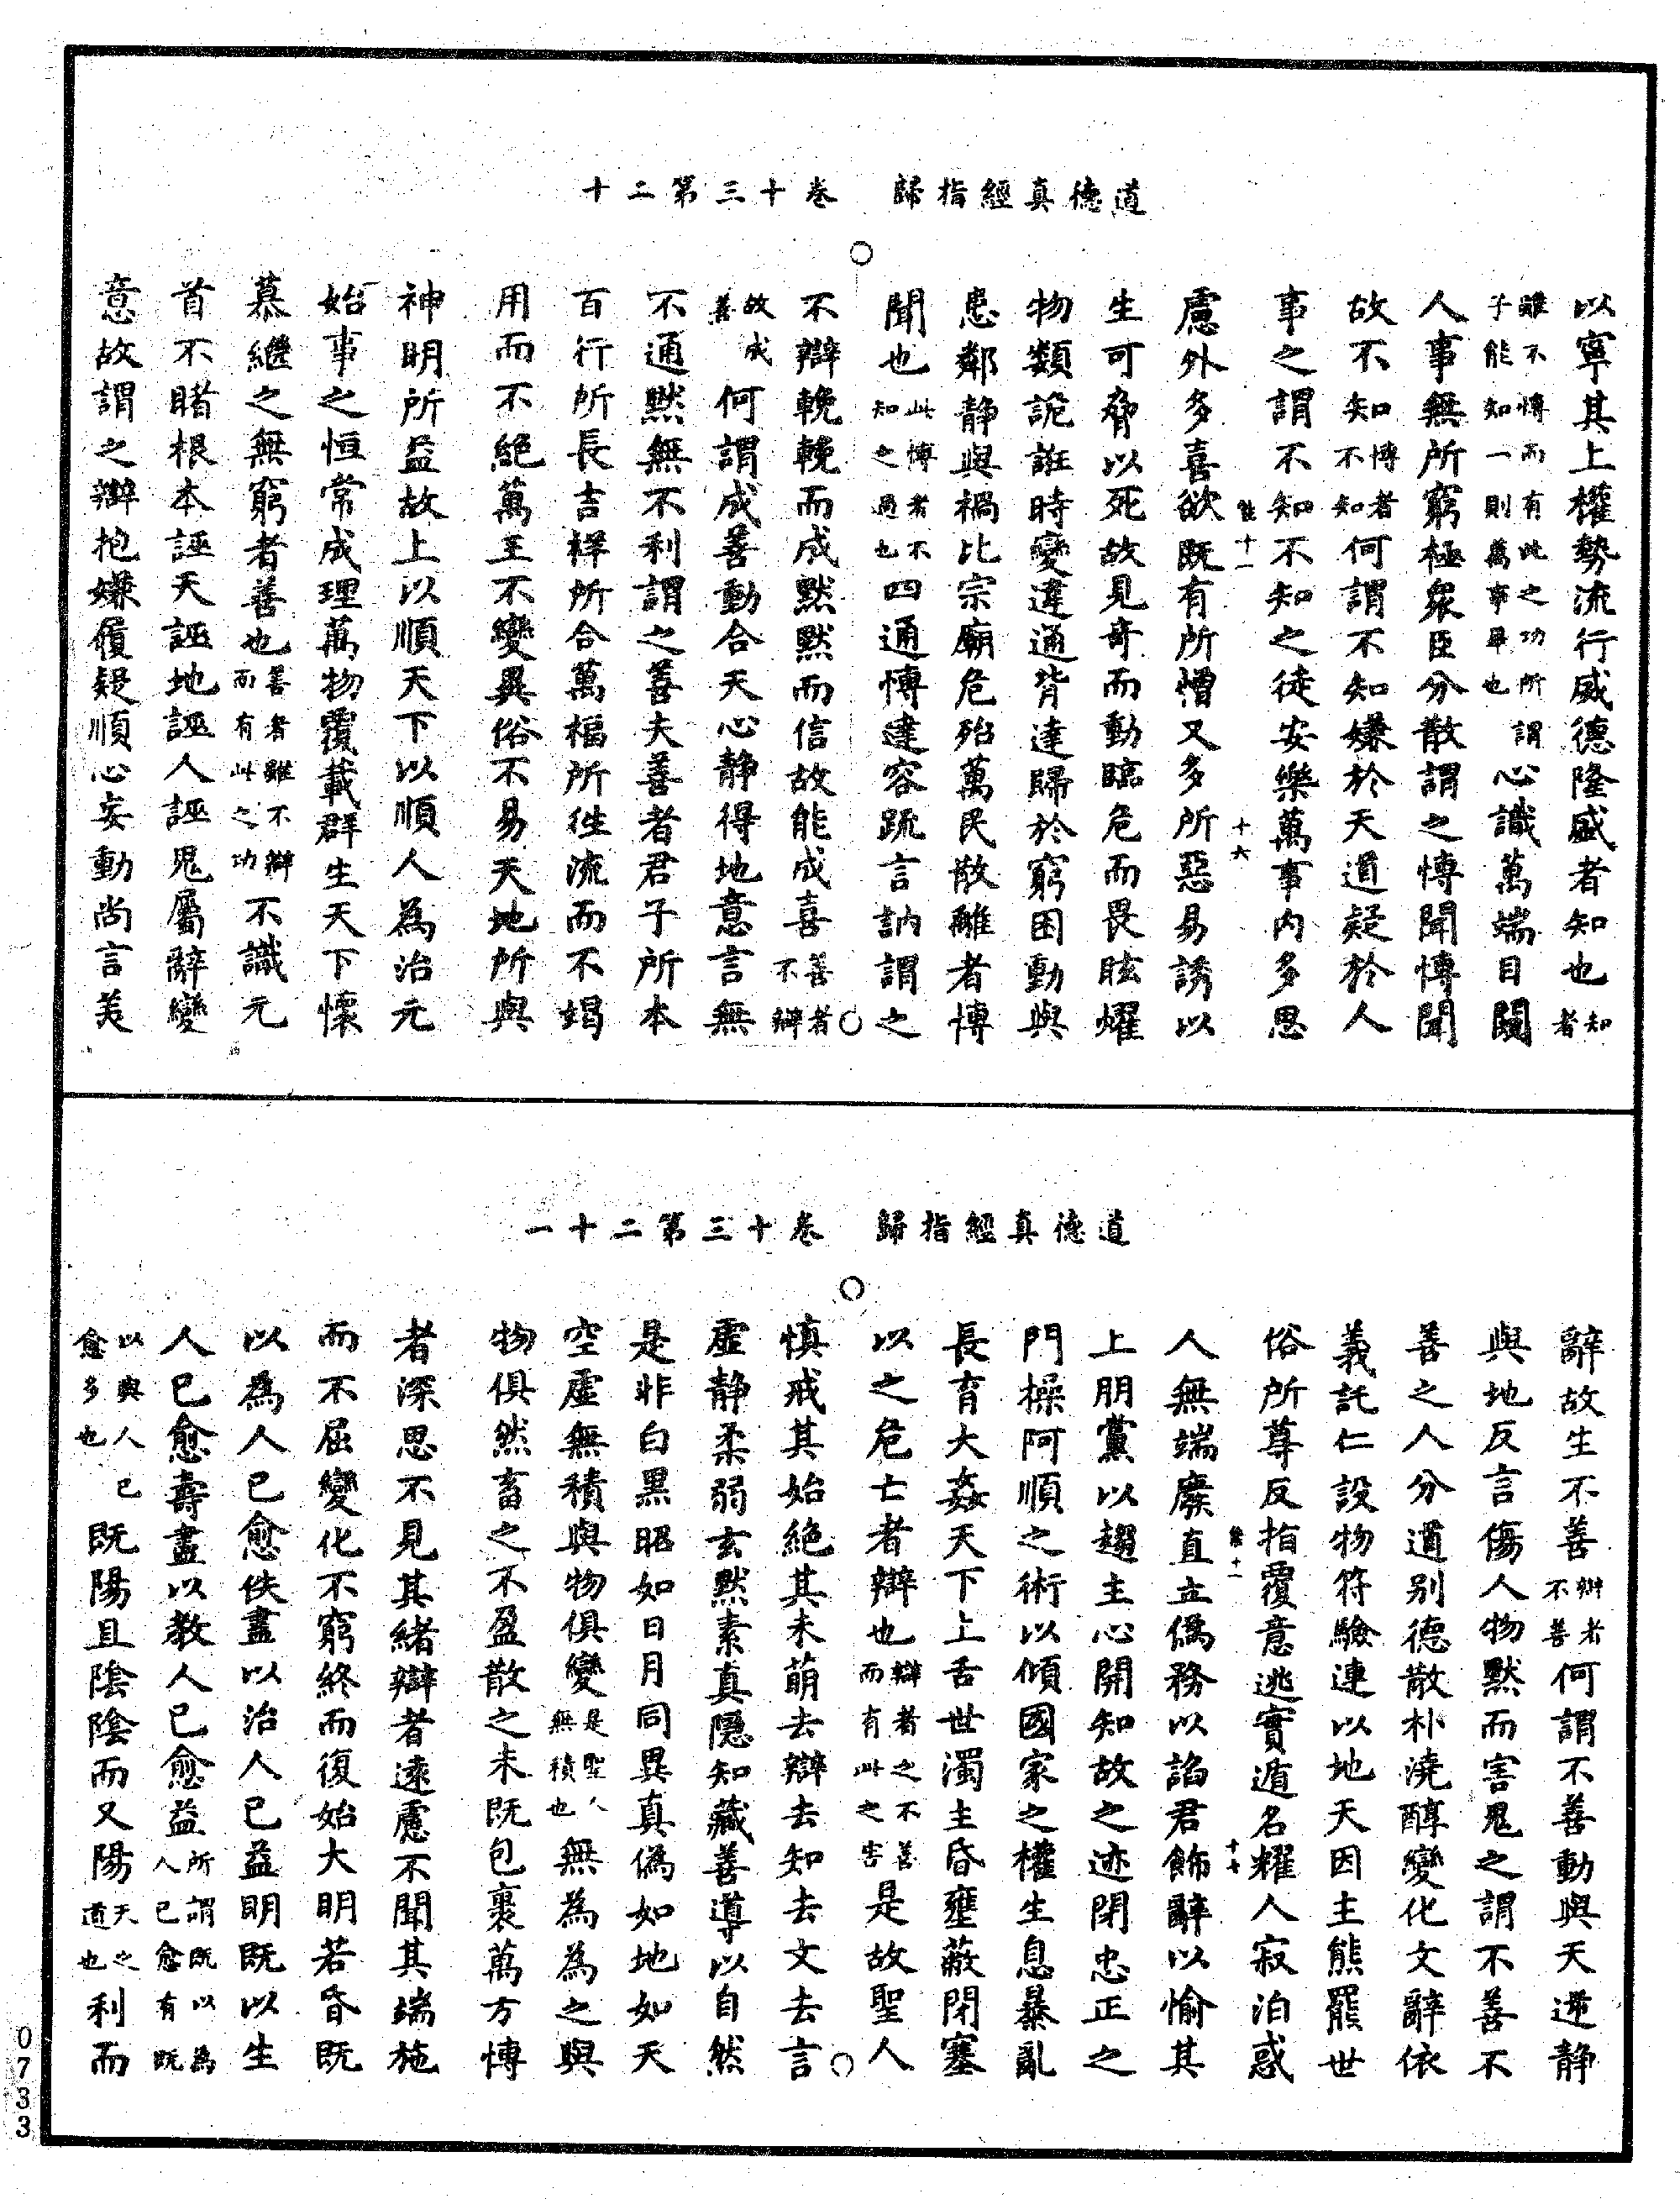 道德真經指歸　卷十三第二十
以寧其上權勢流行威德隆盛者知也知者
雖不愽而有此之功所謂子能知一則萬事畢也心識萬端目閱
人事無所窮極衆臣分散謂之愽聞愽聞
故不知愽者不知何謂不知嫌於天道疑於人
事之謂不知不知之徒安樂萬事内多思
能十一　十六
慮外多喜欲既有所憎又多所惡易誘以
生可脅以死故見奇而動臨危而畏眩燿
物類詭誑時變違通背達歸於窮困動與
患鄰静與禍比宗廟危殆萬民散離者愽
聞也此愽者不知之過也四通愽達容疏言訥謂之
不辯輓輓而成默默而信故能成喜善者不辯
故成善何謂成善動合天心静得地意言無
不通默無不利謂之善夫善者君子所本
百行所長吉祥所合萬福所往流而不竭
用而不絶萬王不變異俗不易天地所與
神明所益故上以順天下以順人為治元
始事之恒常成理萬物覆載群生天下懷
慕繼之無窮者善也善者雖不辯而有此之功不識元
首不睹根本誣天誣地誣人誣鬼屬辭變
意故謂之辯抱嫌履疑順心妄動尚言美
道德真經指歸　卷十三第二十一
辭故生不善辯者不善何謂不善動與天逆静
與地反言傷人物默而害鬼之謂不善不
善之人分道别德散朴澆醇變化文辭依
義託仁設物符驗連以地天因主熊羆世
俗所尊反指覆意逃實遁名耀人寂泊惑
能十一　十七
人無端廉直立僞務以諂君飾辭以愉其
上朋黨以趨主心開知故之迹閉忠正之
門操阿順之術以傾國家之權生息暴亂
長育大姦天下上舌世濁主昏壅蔽閉塞
以之危亡者辯也辯者之不善而有此之害是故聖人
慎戒其始絶其未萌去辯去知去文去言
虛静柔弱玄默素真隱知藏善導以自然
是非白黒昭如日月同異真僞如地如天
空虛無積與物俱變是聖人無積也無為為之與
物俱然畜之不盈散之未既包裹萬方愽
者深思不見其緒辯者遠慮不聞其端施
而不屈變化不窮終而復始大明若昏既
以為人已愈佚盡以治人已益明既以生
人已愈壽盡以教人已愈益所謂既以為人已愈有既
以與人已愈多也既陽且陰陰而又陽天之道也利而
0733